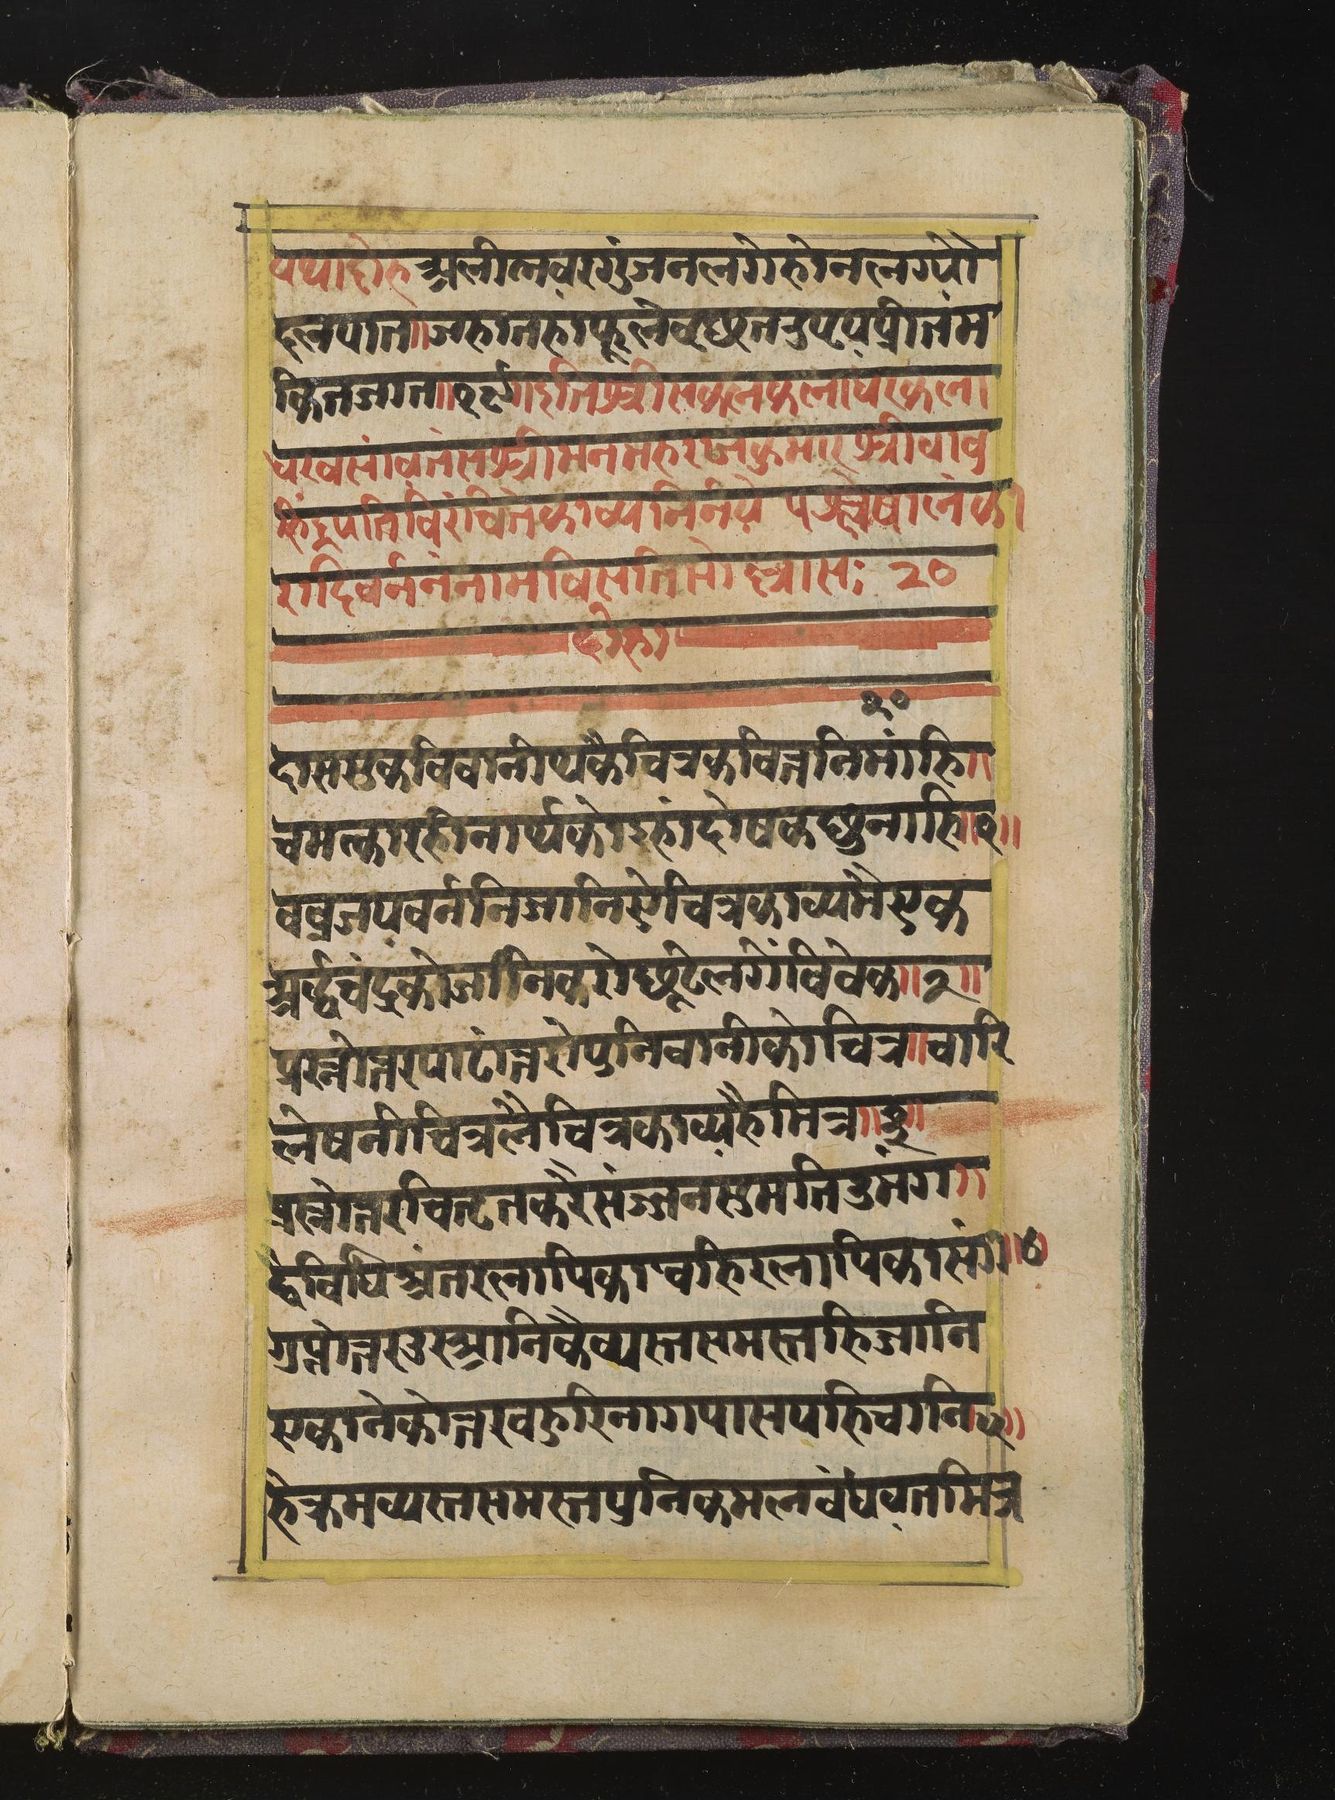 यथा दोह अली भवर गुंजन लगे होन लग्यौ
दल पात॥जहा तहा फूले वृछ तरु पय प्रीतम
कित जात॥१९॥इति श्री सकल कलाधर कला
धर वंसावतंस श्रीमन महाराज कुमार श्री बाबु
हिंदूपति विरचिते काव्य निर्नये श्लेषालंका
रादि वर्ननं नाम विसतिमो ल्लासः २०
दोहा
२०
दास सुकवि वानी थकै चित्र कवित्तनि मांहि॥
चमत्कार हीनार्थ को इहां दोष कछु नाहि॥१॥
व व ज य वर्ननि जानिऐ चित्र काव्य मै एक
अर्द्धचंद्र को जनि करो छूटे लगें विवेक॥२॥
प्रस्नोत्तर पाठांत्तरो पुनि वानी को चित्र॥चारि
लेषनी चित्र लै चित्र काव्य है मित्र॥३॥
प्रस्नोत्तर चित्रित करै सज्जन सुमति उमंग॥
द्वै विधि अंतरलापिका वहिरलापिका संग॥४
गुप्तोत्तर उर आनि कै व्यस्त समस्तहि जानि
एकानेकोत्तर वहुरि नागपास पहिचानि॥५॥
है क्रम व्यस्त समस्त पुनि कमल वंधवत मित्र